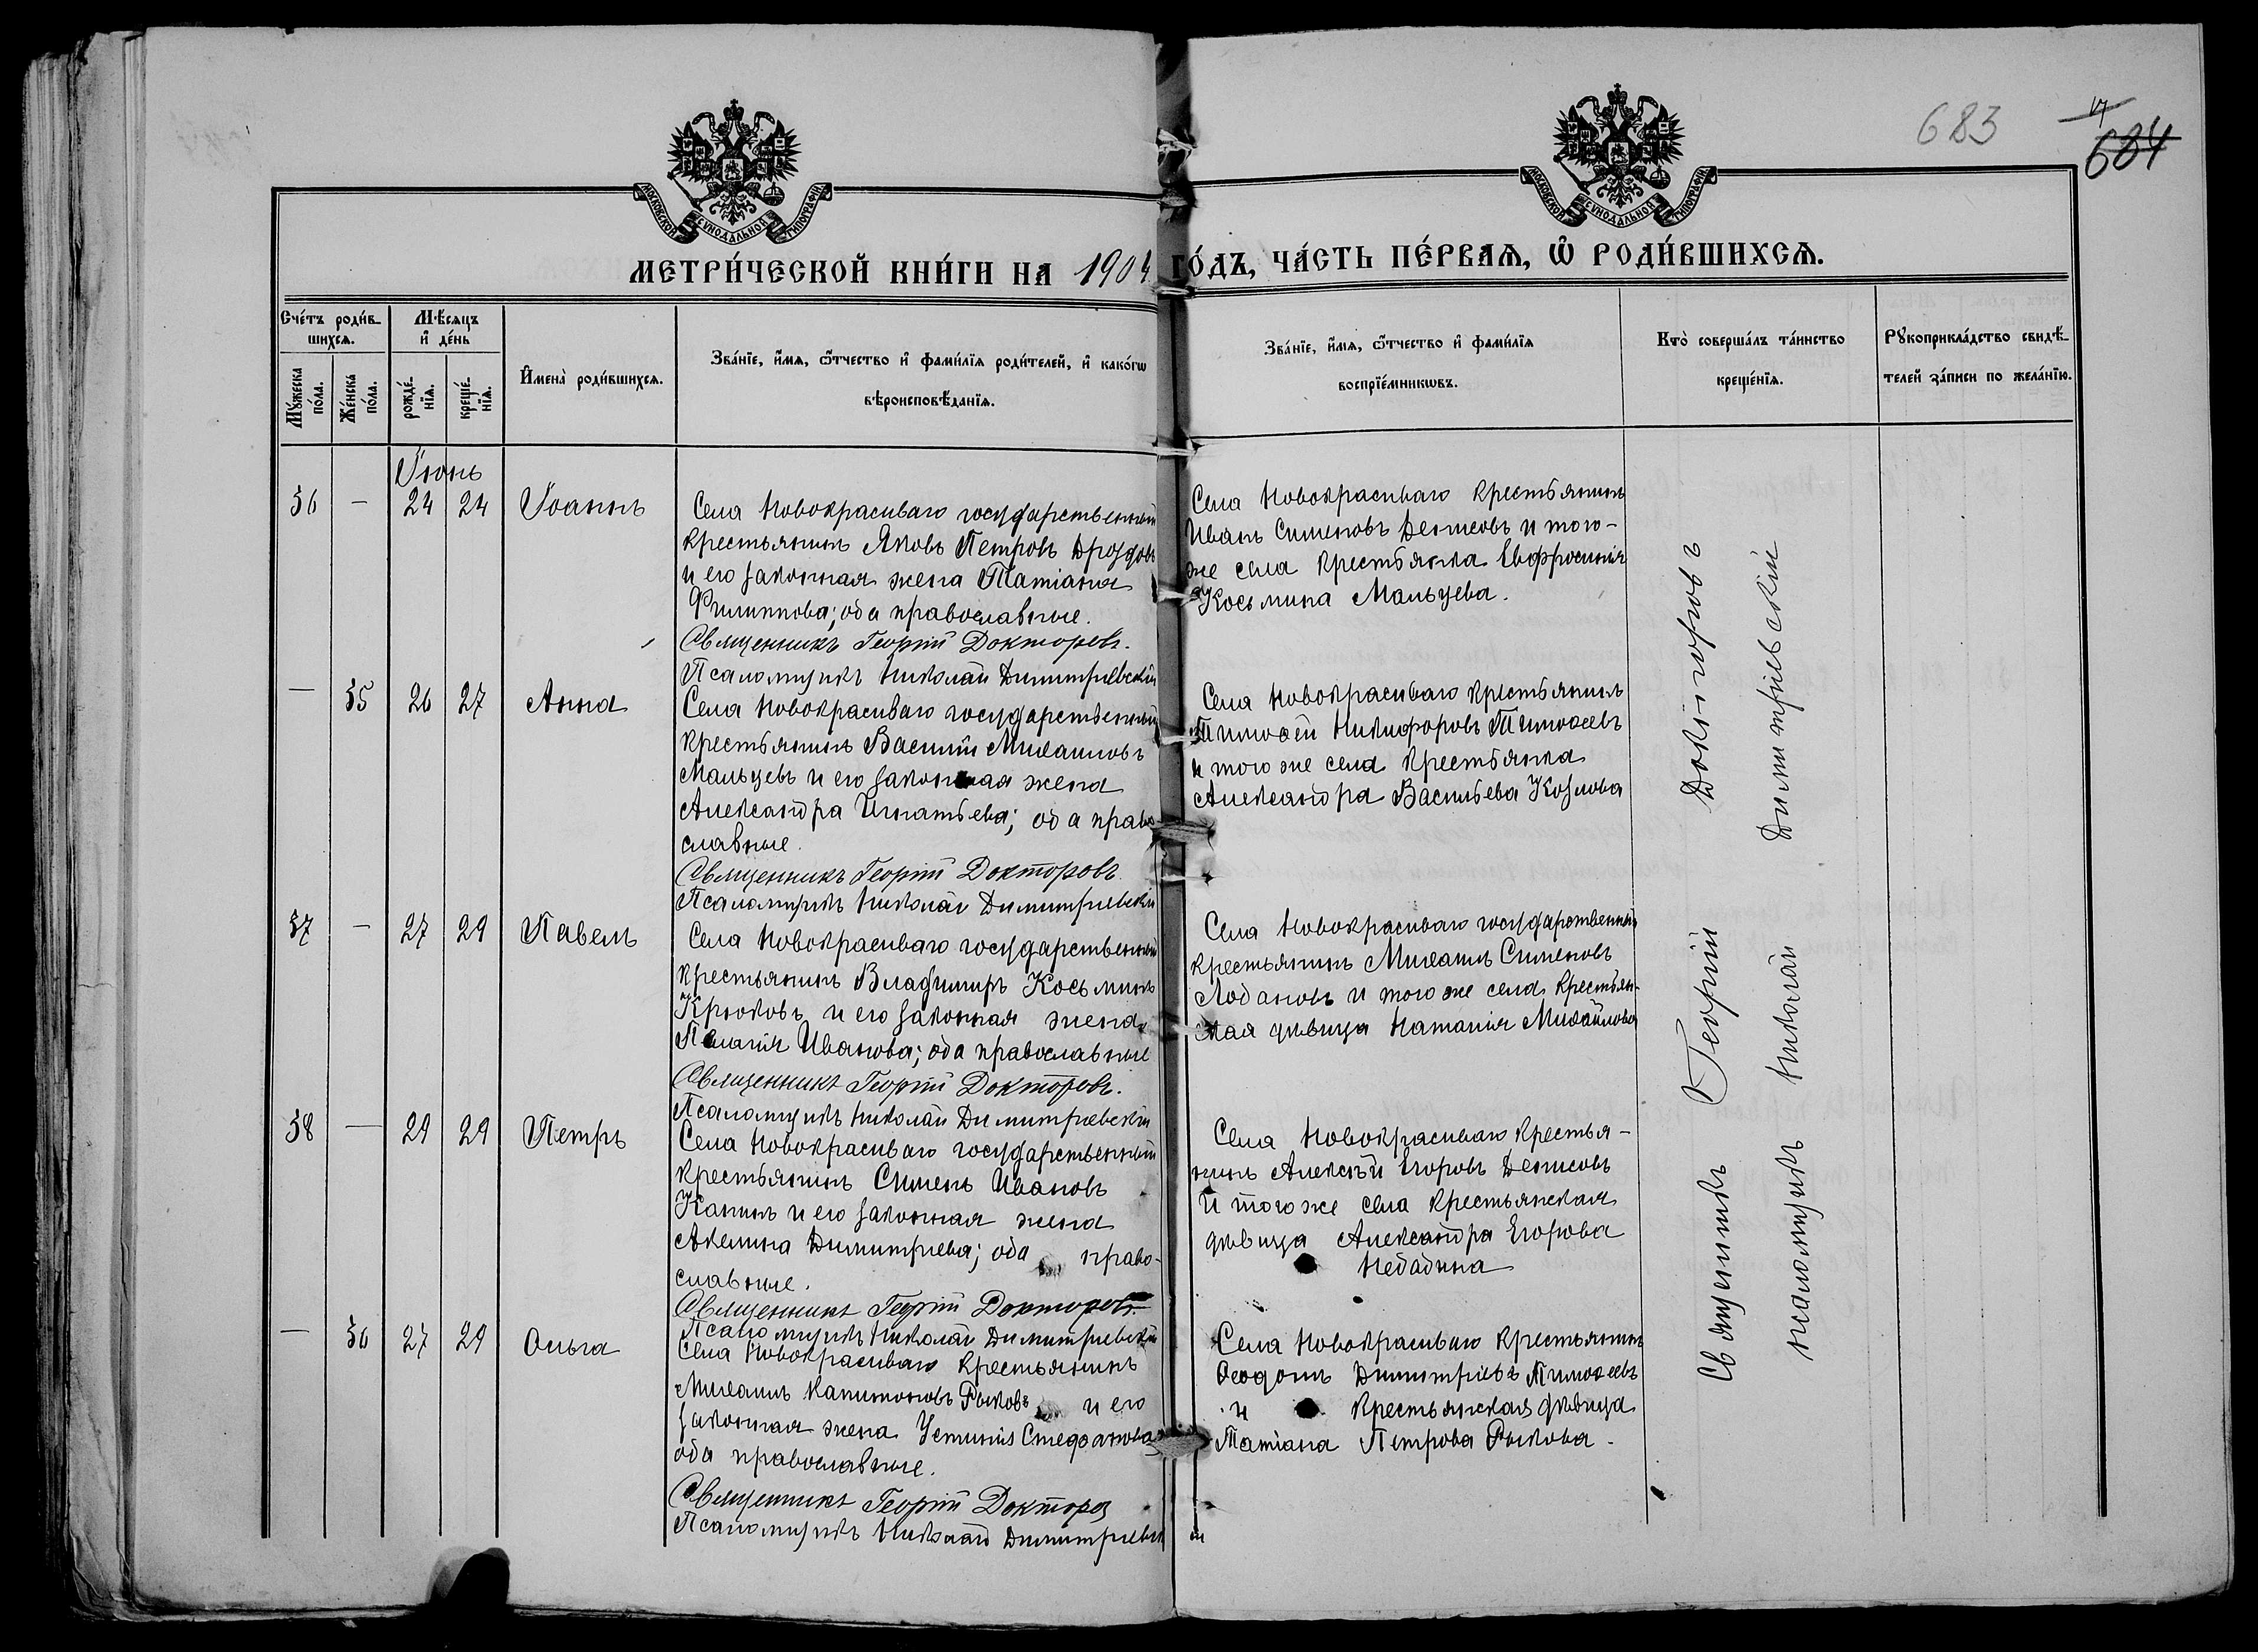 683
17
684
МОСКОВСКОЙ СѴНОДАЛЬНОЙ ТИПОГРАФІИ
МОСКОВСКОЙ СѴНОДАЛЬНОЙ ТИПОГРАФІИ
МЕТРИ́ЧЕСКОЙ КНИ́ГИ НА 1904 ГО́ДЪ, ЧА́СТЬ ПЕ́РВАЯ, Ѿ РОДИ́ВШИХСЯ.
Сче́тъ роди́в-
шихся.
Мѣ́сяцъ
и҆ де́нь
Му́жеска по́ла.
Же́нска по́ла.
рожде́-
нїя.
креще́-
нїя.
И҆мена̀ роди́вшихся.
Зва́нїе, и҆́мя, ѻ҆́тчество и҆ фами́лїя роди́телей, и҆ како́гѡ
вѣроисповѣ́данїя.
Зва́нїе, и҆́мя, ѻ҆́тчество и҆ фами́лїя
воспрїе́мникѡвъ.
Кто̀ соверша́лъ та́инство
креще́нїя.
Рꙋкоприкла́дство свидѣ́-
телей за́писи по жела́нїю.
Іюнь
36 — 24 24 Іоаннъ
Села Новокрасиваго государственный
крестьянинъ Яковъ Петровъ Дроздовъ
и его законная жена Татіана
Филиппова; оба православные.
Священникъ Георгій Докторовъ.
Псаломщикъ Николай Димитріевскій
Села Новокрасиваго крестьянинъ
Иванъ Сименовъ Денисовъ и того-
же села крестьянка Евфросинія
Косьмина Мальцева.
— 35 26 27 Анна
Села Новокрасиваго государственный
крестьянинъ Василій Михаиловъ
Мальцевъ и его законная жена
Александра Игнатьева; оба право
славные.
Священникъ Георгій Докторовъ.
Псаломщикъ Николай Димитріевскій
Села Новокрасиваго крестьянинъ
Тимоѳей Никифоровъ Тимоѳеевъ
и того же села крестьянка
Александра Васильева Козлова
37 — 27 29 Павелъ
Села Новокрасиваго государственный
крестьянинъ Владимиръ Косьминъ
Крюковъ и его законная жена
Пелагія Иванова; оба православные
Священникъ Георгій Докторовъ.
Псаломщикъ Николай Димитріевскій
Села Новокрасиваго государственный
крестьянинъ Михаилъ Сименовъ
Лобановъ и того же села крестьян-
ская дѣвица Наталія Михайлова
38 — 29 29 Петръ
Села Новокрасиваго государственный
крестьянинъ Сименъ Ивановъ
Канинъ и его законная жена
Акелина Димитріева; оба право-
славные.
Священникъ Георгій Докторовъ.
Псаломщикъ Николай Димитріевскій
Села Новокрасиваго крестья-
нинъ Алексѣй Егоровъ Денисовъ
и того же села крестьянская
дѣвица Александра Егорова
— 36 27 29 Ольга
Села Новокрасиваго крестьянинъ
Михаилъ Капитоновъ Рыковъ и его
законная жена Устинія Стефанова
оба православные.
Священникъ Георгій Докторов
Псаломщикъ Николай Димитріевскій
Села Новокрасиваго крестьянинъ
Ѳеодотъ Димитріевъ Тимоѳеевъ
и крестьянская дѣвица
Татіана Петрова Рыкова.
Священникъ Георгій Докторовъ
псаломщикъ Николай Димитріевскій